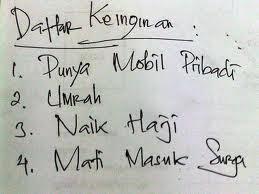 Daftar Keinginan :
1. Punya Mobil Pribadi
2. Umrah
3. Naik Haji
4. Mati Masuk Surga